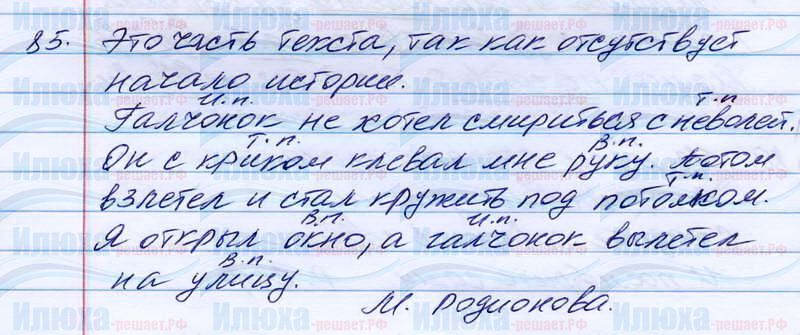 85. Это часть текста, так как отсутствует
начало истории.
И.п. Т.п
Галчонок не хотел смириться с неволей.
Т.п. В.п.
Он с криком клевал мне руку. Потом
Т.п.
взлетел и стал кружить под потолком.
В.п. И.п.
Я открыл окно, а галчонок вылетел
В.п.
на улицу.
М. Родионова.
Илюха-решает.РФ